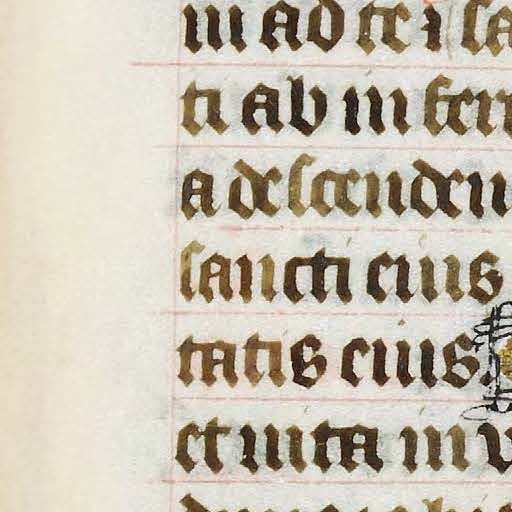 ui ad te ⁊ sa
ti ab infer
a descenden
sancti eius
tatis eius.
et uita in v